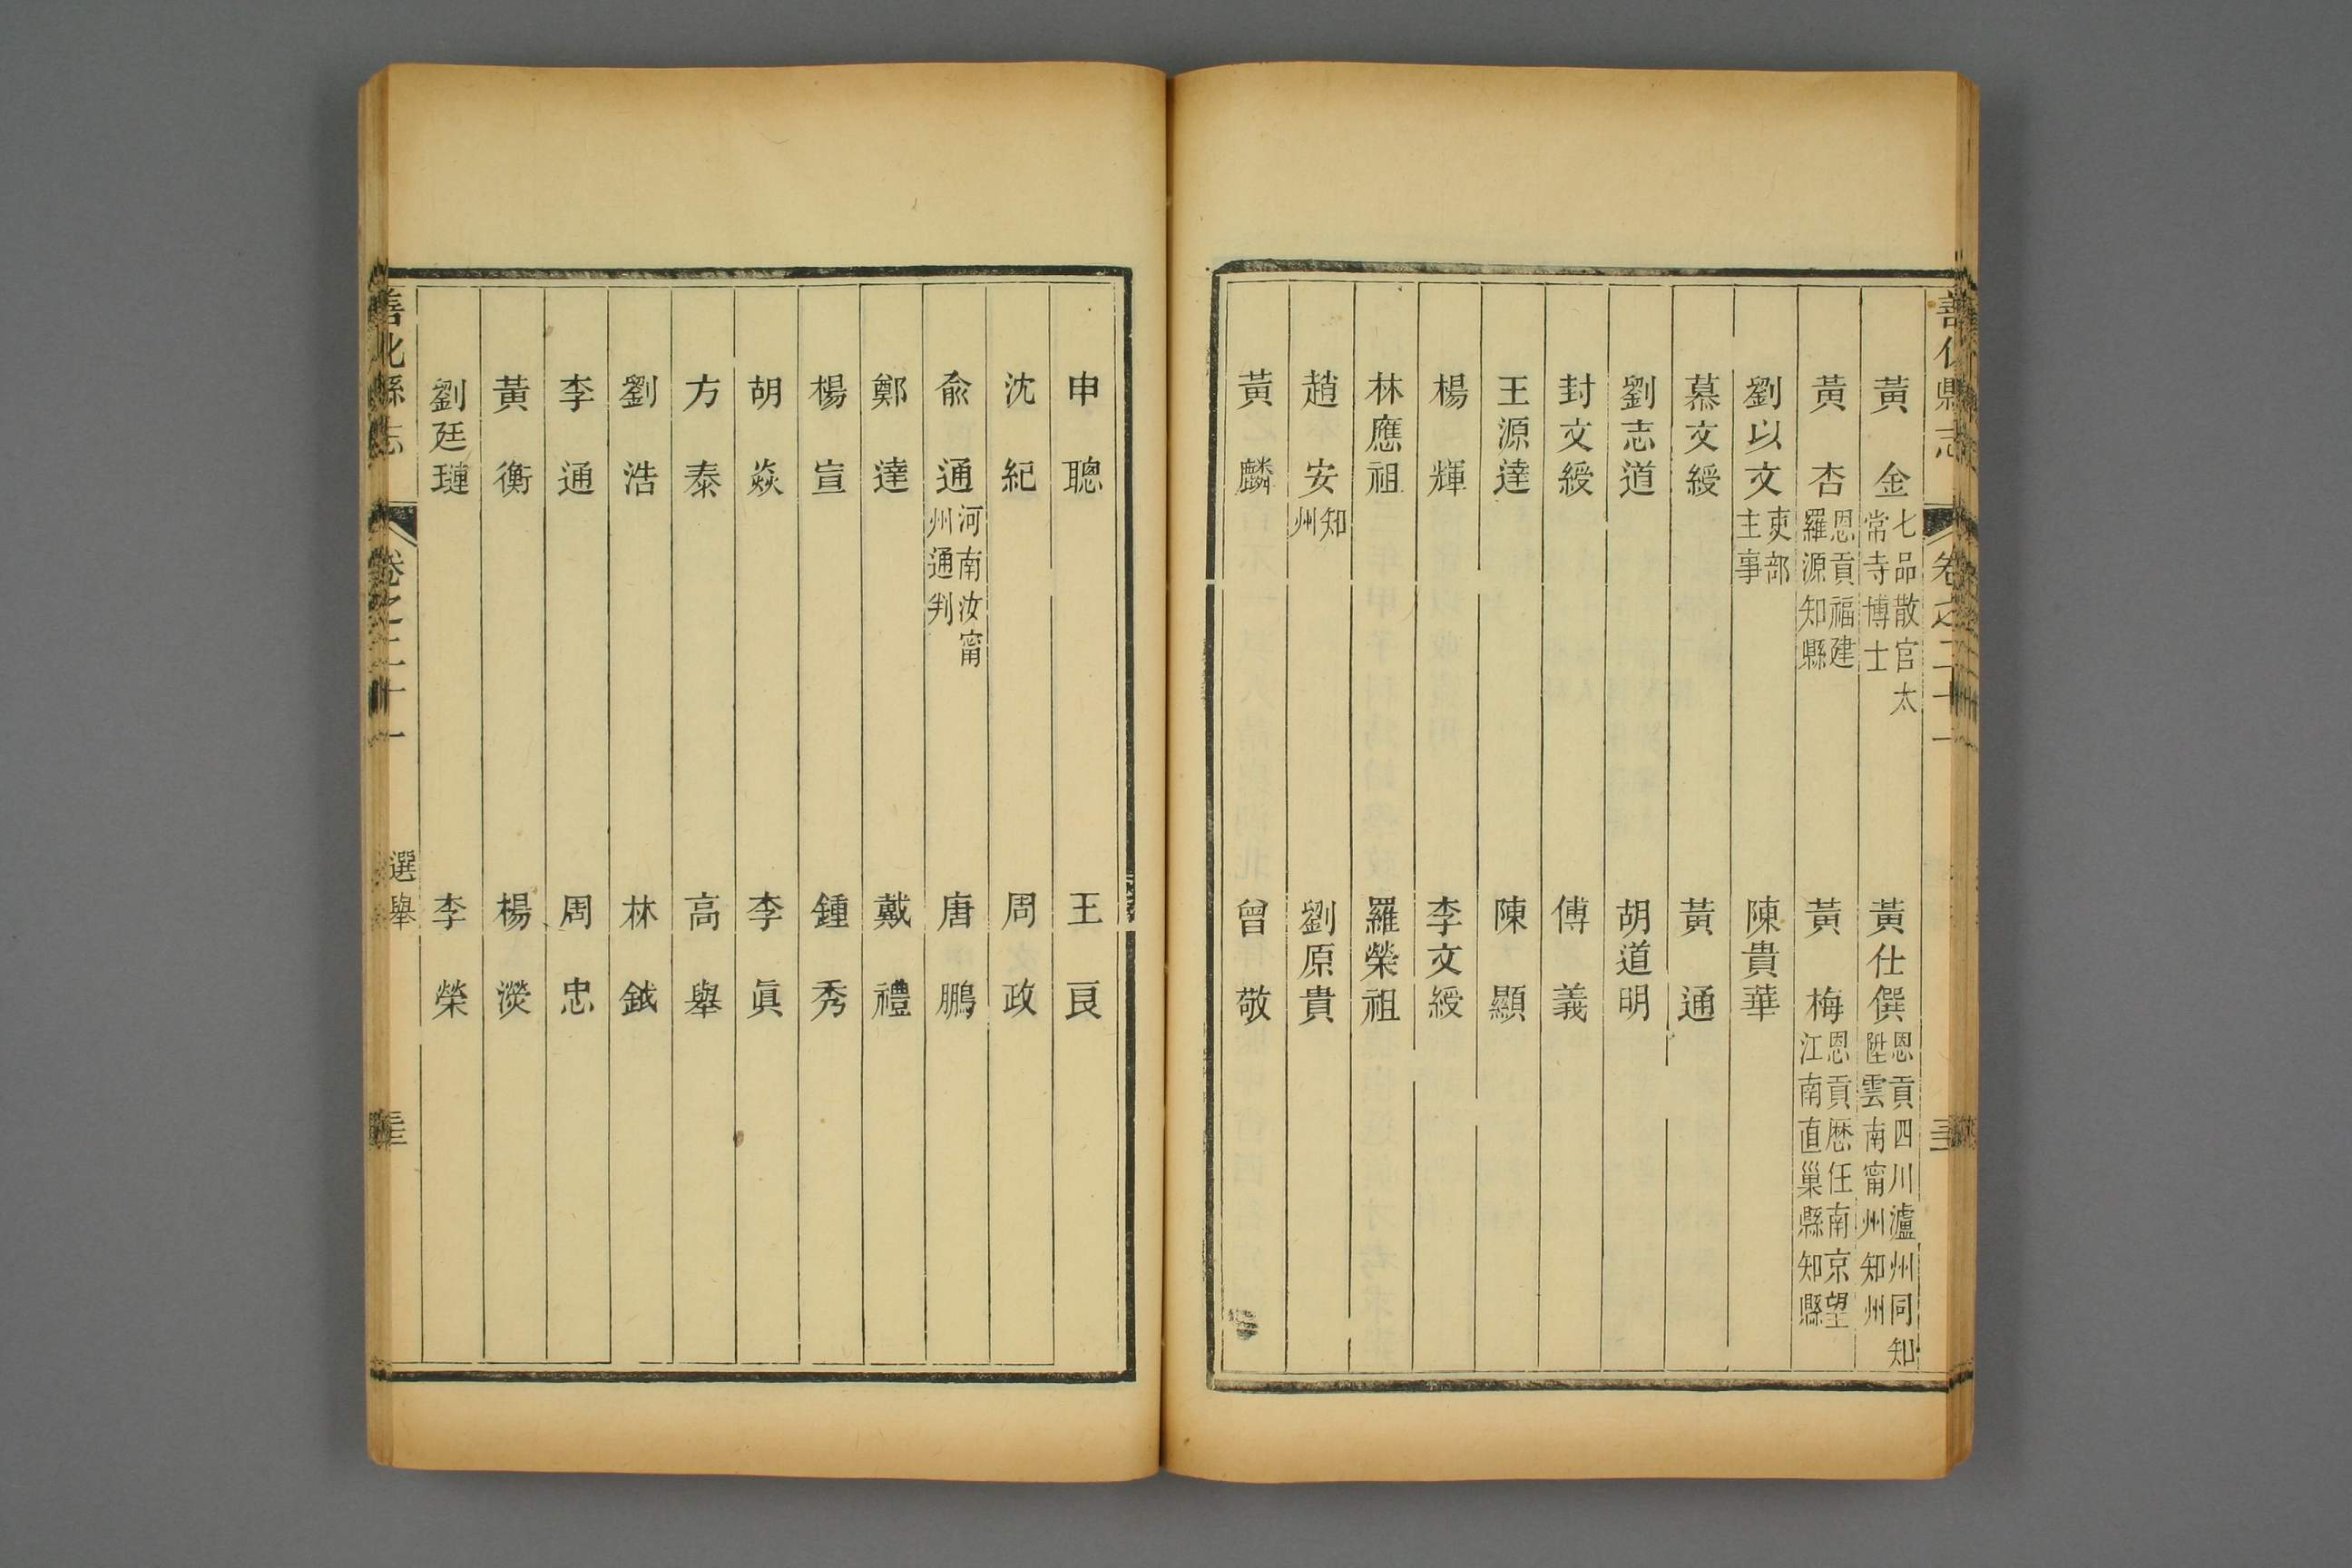 善化縣志 卷之二十一
黃 金 七品散官太常寺博士 黃仕僎 恩貢四川瀘州同知陞雲南甯州知州
黃 杏 恩貢福建羅源知縣 黃 梅 恩貢厯任南京望江南直巢縣知縣
劉以文 吏部主事 陳貴華
慕文綬 黃 通
劉志道 胡道明
封文綬 傅 義
王源達 陳 顯
楊 輝 李文綬
林應祖 羅榮祖
趙 安 知州 劉原貴
黃 麟 曾 敬
申 聰 王 良
沈 紀 周 政
兪 通 河南汝甯州通判 唐 鵬
鄭 達 戴 禮
楊 宣 鍾 秀
胡 焱 李 眞
方 泰 高 舉
劉 浩 林 鉞
李 通 周 忠
黃 衡 楊 漤
劉廷璉 李 榮
善化縣志 卷之二十一 選舉